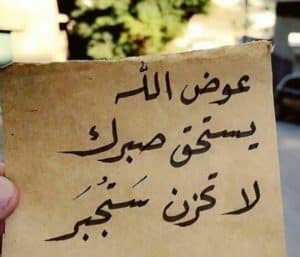 عوض الله
يستحق صبرك
لا تحزن سَتُجبَر